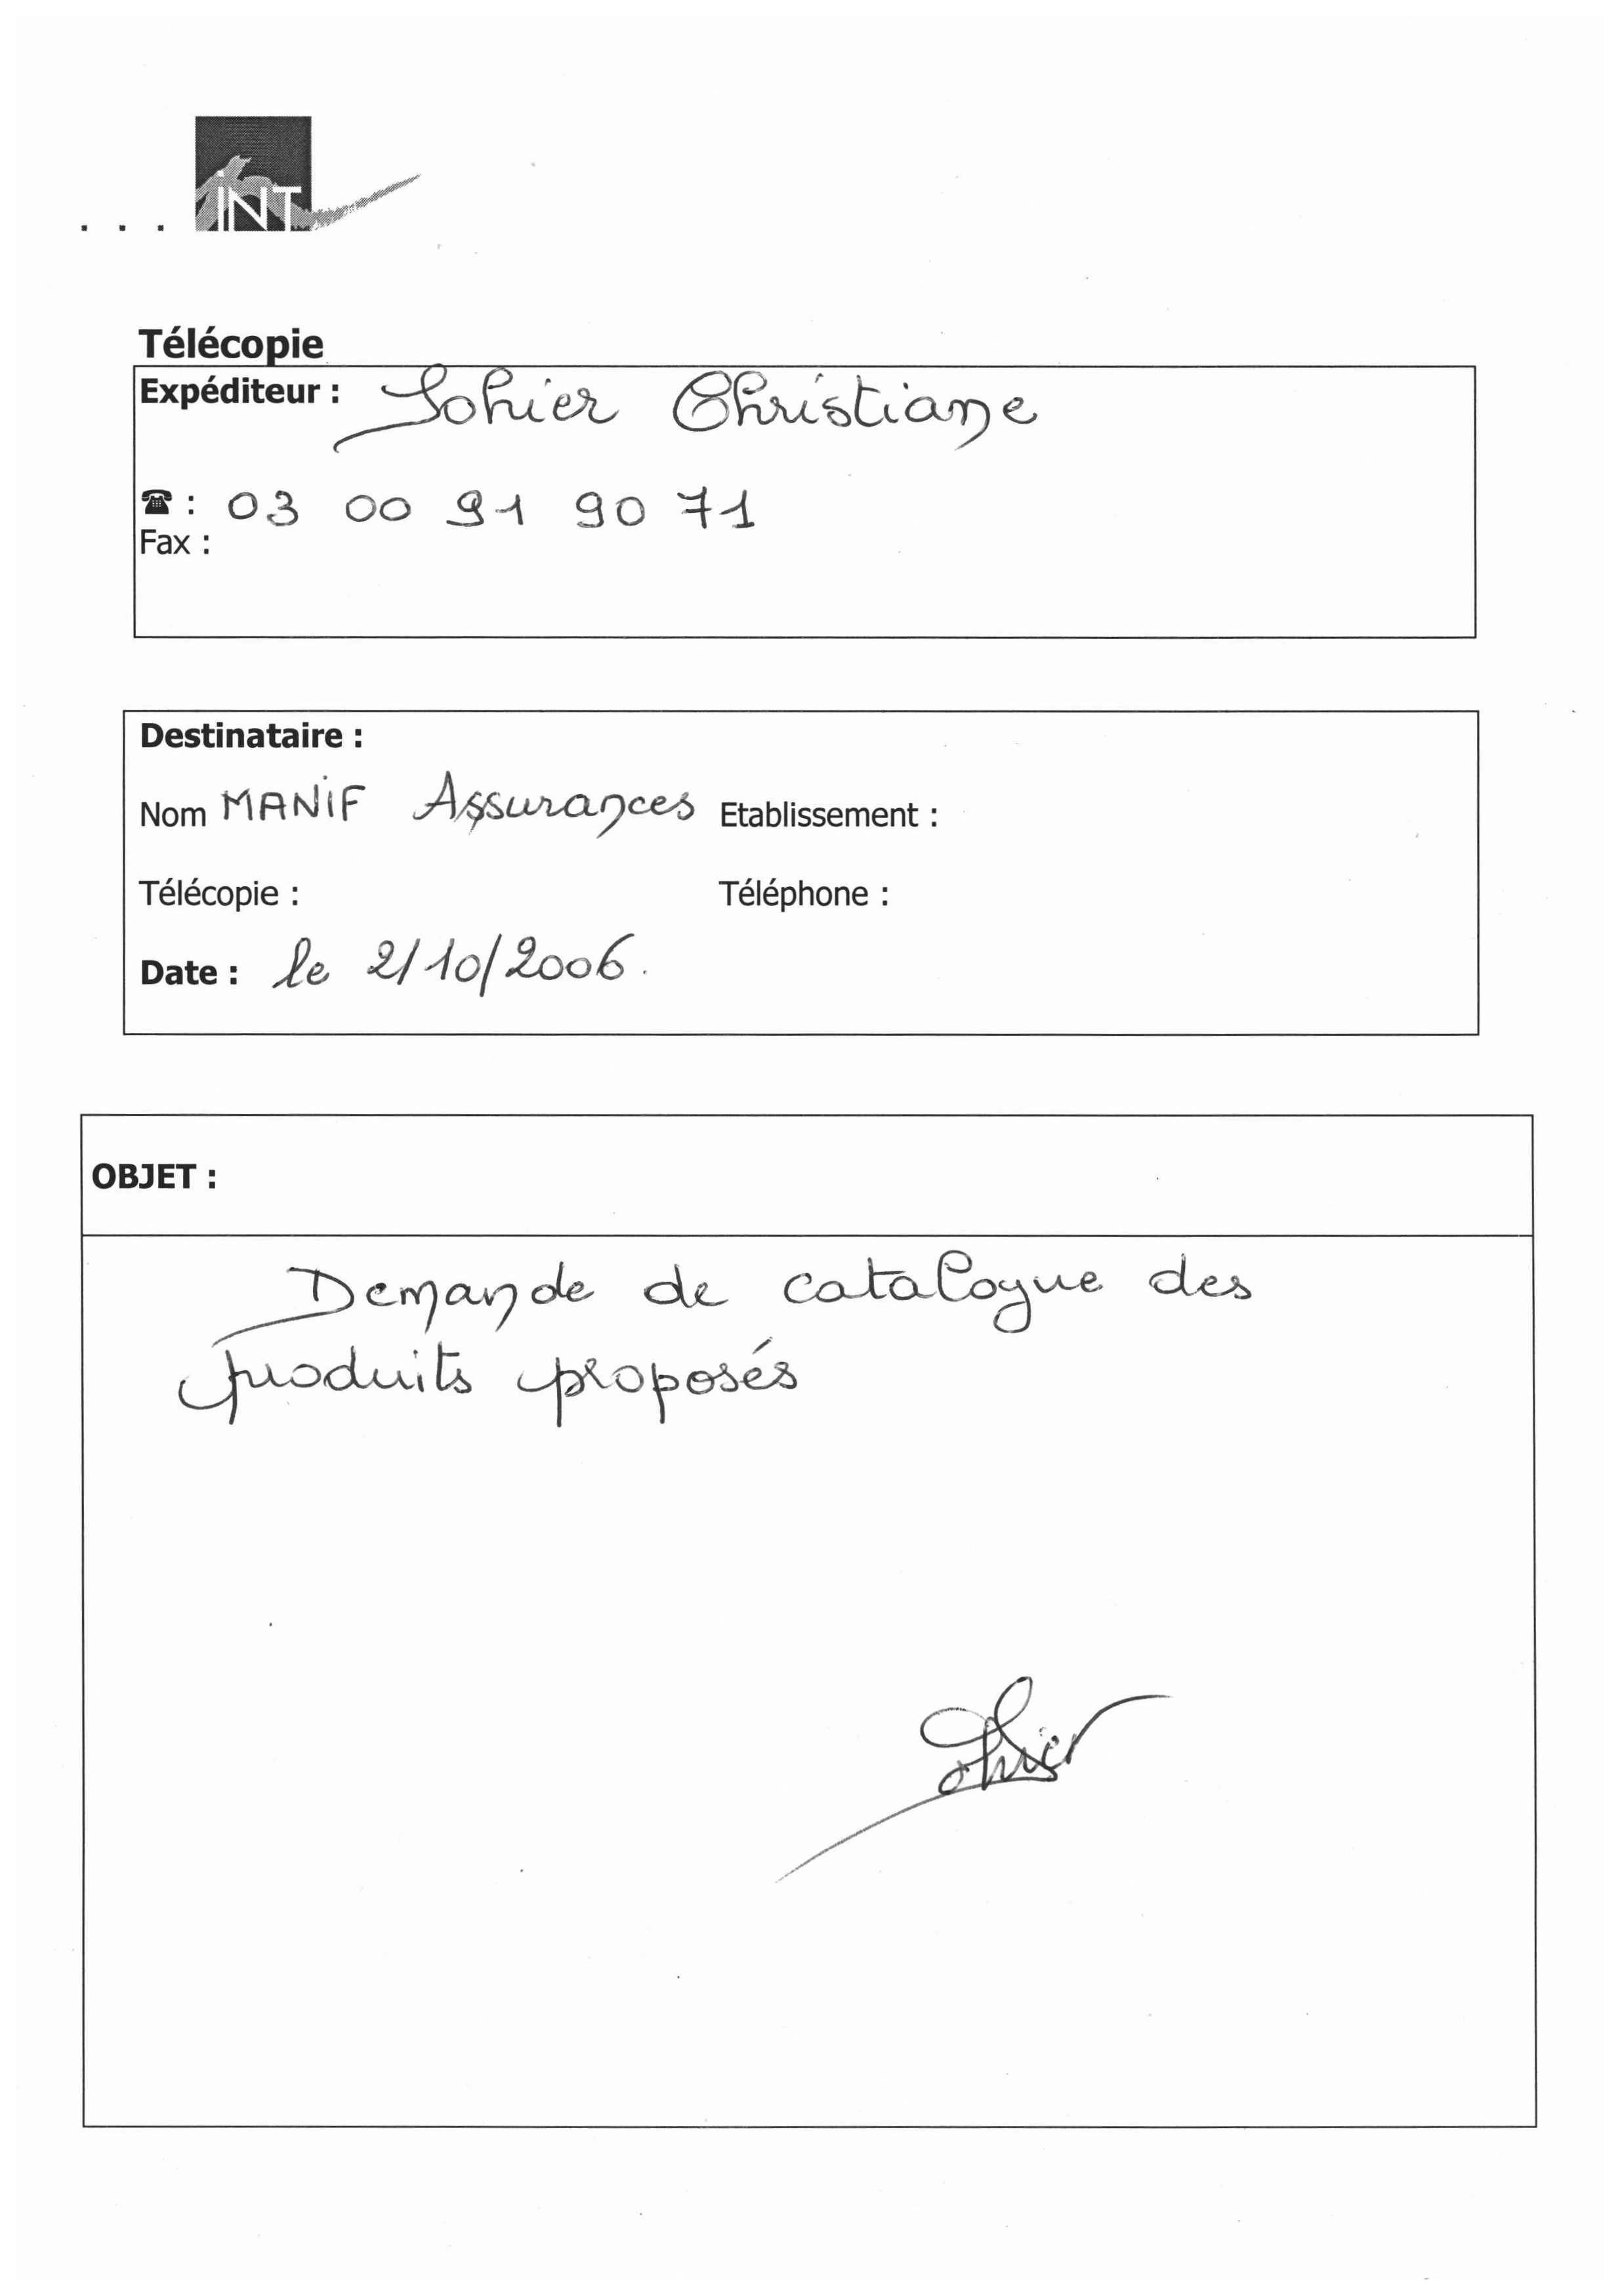 ... iNT
Télécopie
Expéditeur : Sohier Christiane
☎ : 03 00 91 90 71
Fax :
Destinataire :
Nom MANiF Assurances Etablissement :
Télécopie : Téléphone :
Date : le 2/10/2006.
OBJET :
Demande de catalogue des
produits proposés
Sohier